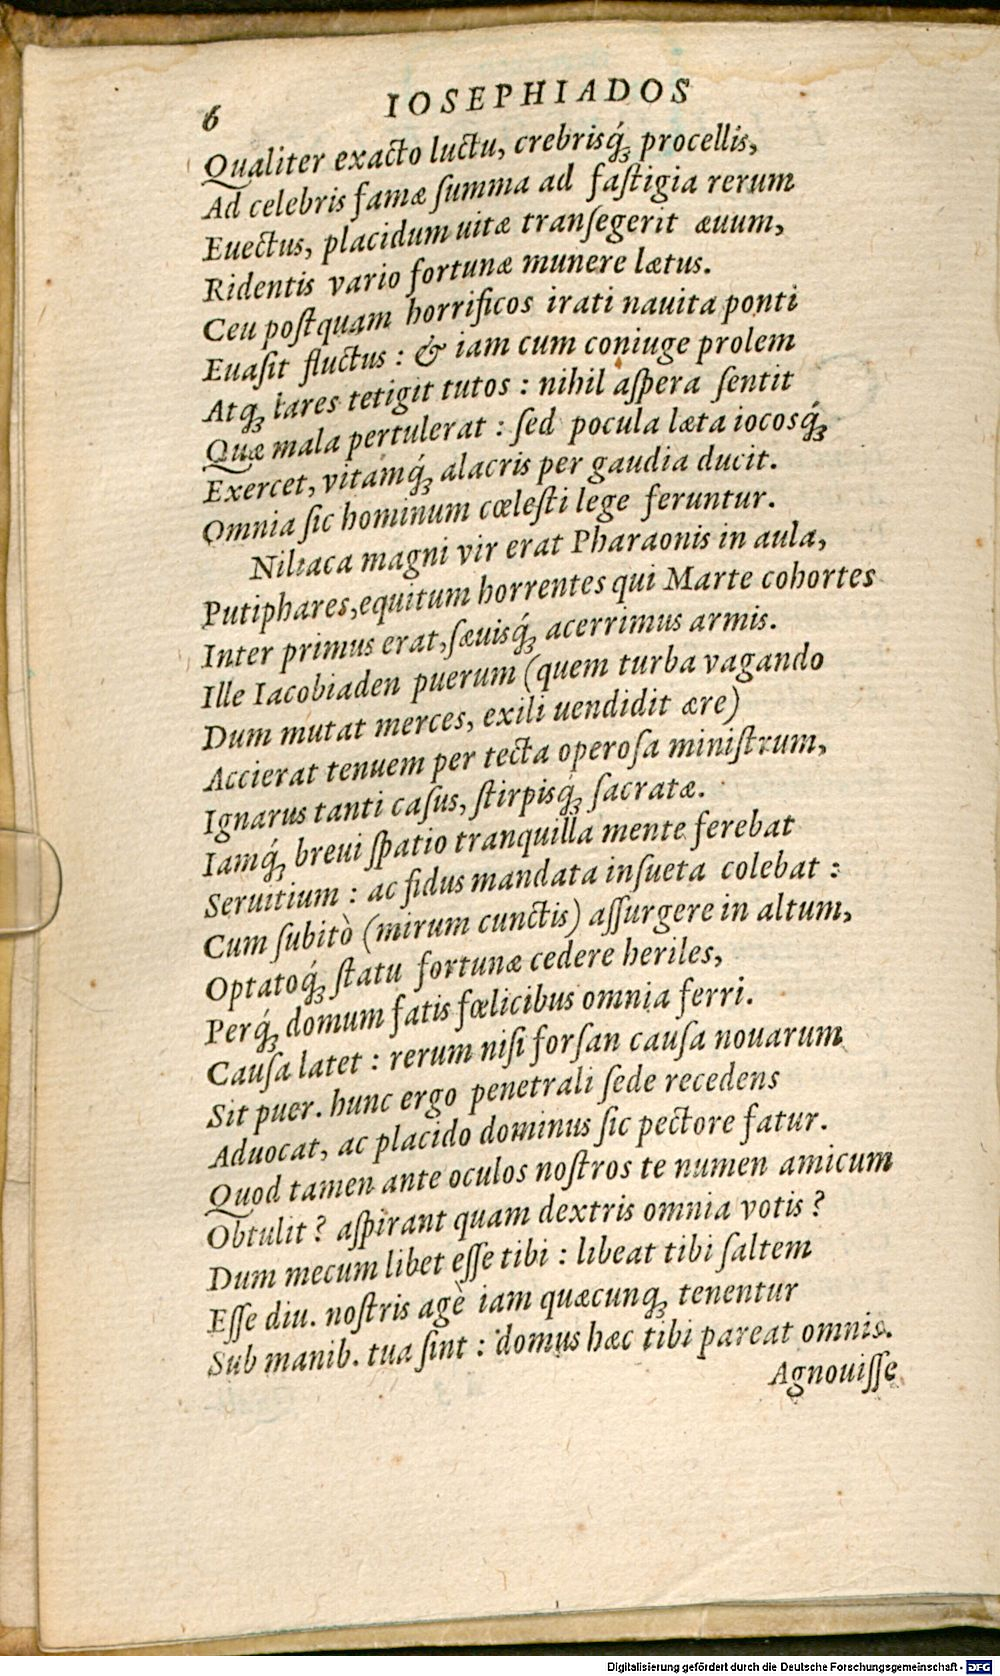 6 IOSEPHIADOS
Qualiter exacto luctu, crebrisq́ꝫ procellis,
Ad celebris famæ ſumma ad faſtigia rerum
Euectus, placidum uitæ tranſegerit æuum,
Ridentis vario fortunæ munere lætus.
Ceu poſtquam horrificos irati nauita ponti
Euaſit fluctus : & iam cum coniuge prolem
Atqꝫ lares tetigit tutos : nihil aſpera ſentit
Quæ mala pertulerat : ſed pocula læta iocosq́ꝫ
Exercet, vitamq́ꝫ alacris per gaudia ducit.
Omnia ſic hominum cœleſti lege feruntur.
Niliaca magni vir erat Pharaonis in aula,
Putiphares, equitum horrentes qui Marte cohortes
Inter primus erat, ſæuisq́ꝫ acerrimus armis.
Ille Iacobiaden puerum (quem turba vagando
Dum mutat merces, exili uendidit ære)
Accierat tenuem per tecta operoſa miniſtrum,
Ignarus tanti caſus, ſtirpisq́ꝫ ſacratæ.
Iamq́ꝫ breui ſpatio tranquilla mente ferebat
Seruitium : ac fidus mandata inſueta colebat :
Cum ſubitò (mirum cunctis) aſſurgere in altum,
Optatoq́ꝫ ſtatu fortunæ cedere heriles,
Perq́ꝫ domum fatis fœlicibus omnia ferri.
Cauſa latet : rerum niſi forſan cauſa nouarum
Sit puer. hunc ergo penetrali ſede recedens
Aduocat, ac placido dominus ſic pectore fatur.
Quod tamen ante oculos noſtros te numen amicum
Obtulit ? aſpirant quam dextris omnia votis ?
Dum mecum libet eſſe tibi : libeat tibi ſaltem
Eſſe diu. noſtris agè iam quæcunqꝫ tenentur
Sub manib. tua ſint : domus hæc tibi pareat omnis.
Agnouiſſe
Digitalisierung gefördert durch die Deutsche Forschungsgemeinschaft - DFG